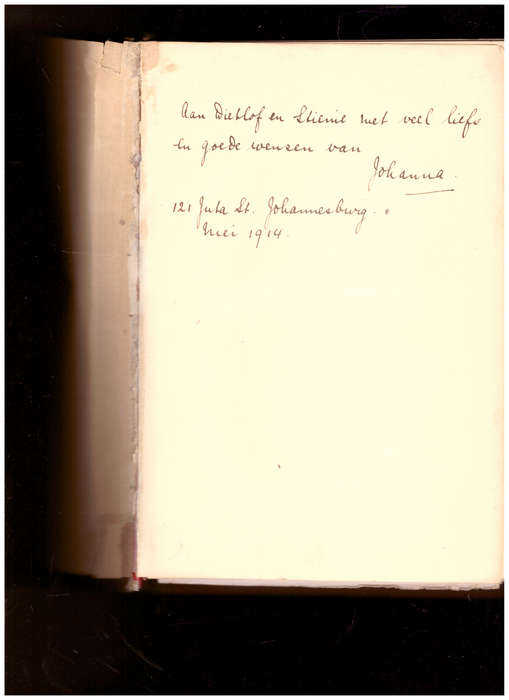 Aan Dietlof en Stienie met veel liefs
en goede wensen van
Johanna.
121 Juta St. Johannesburg.
Mei 1914.